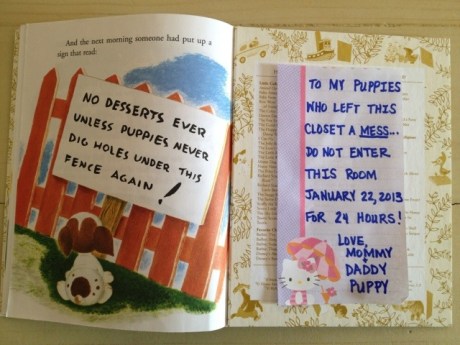 And the next morning someone had put up a
sign that read:
NO DESSERTS EVER
UNLESS PUPPIES NEVER
DIG HOLES UNDER THIS
FENCE AGAIN!
TO MY PUPPIES
WHO LEFT THIS
CLOSET A MESS...
DO NOT ENTER
THIS ROOM
JANUARY 22, 2013
FOR 24 HOURS!
LOVE,
MOMMY
DADDY
PUPPY